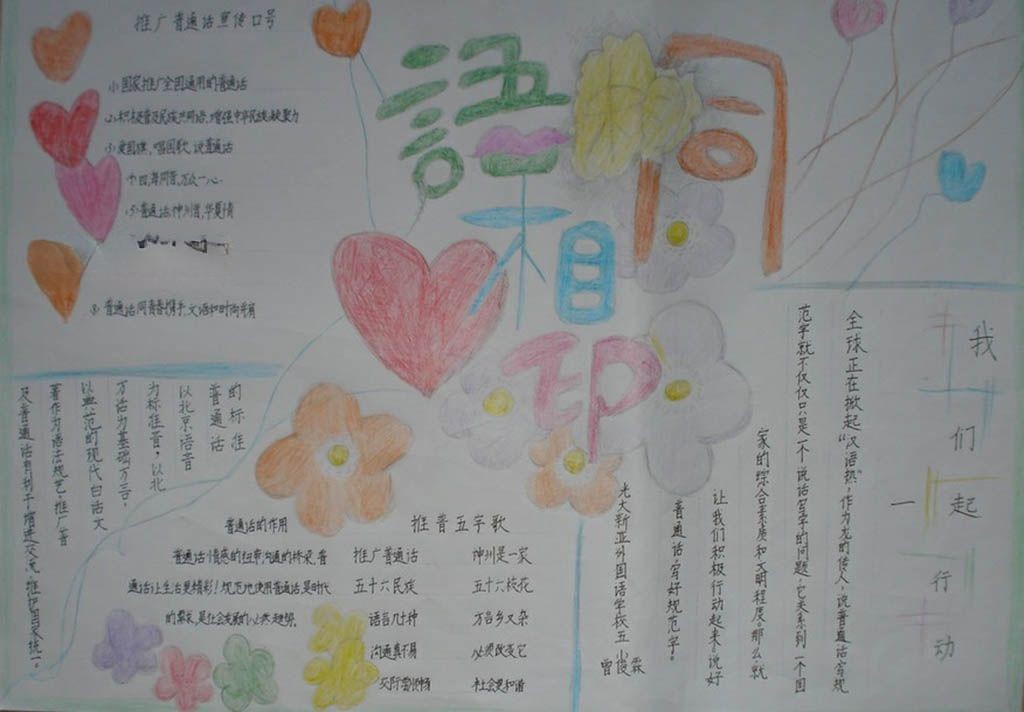 推广普通话宣传口号
(1)国家推广全国通用的普通话
(2)积极普及民族共同语，增强中华民族凝聚力
(3)爱国旗，唱国歌，说普通话
中四海同音，万众一心.
(5)普通话:神州音，华夏情
普通话同青春携手，文语和时尚并肩
語同
相
印
的标准
普通话
以北京语音
为标准音，以北
方话为基础方言，
以典范的现代白话文
著作为语法规范，推广普
及普通话有利于增进交流，维护国家统一。
普通话的作用
普通话:情感的纽带，沟通的桥梁，普
通话让生活更精彩！规范地使用普通话是时代
的需求，是社会发展的必然趋势。
推普五字歌
推广普通话 神州是一家
五十六民族 五十六枝花
语言几十种 方言乡又杂
沟通真不易 必须改变它
交际需顺畅 社会更和谐
我们一起行动
全球正在掀起“汉语热”，作为龙的传人，说普通话写规
范字就不仅仅只是一个说话写字的问题，它关系到一个国
家的综合素质和文明程度。那么，就
让我们积极行动起来，说好
普通话，写好规范字。
光大新亚外国语学校五
曾俊霖